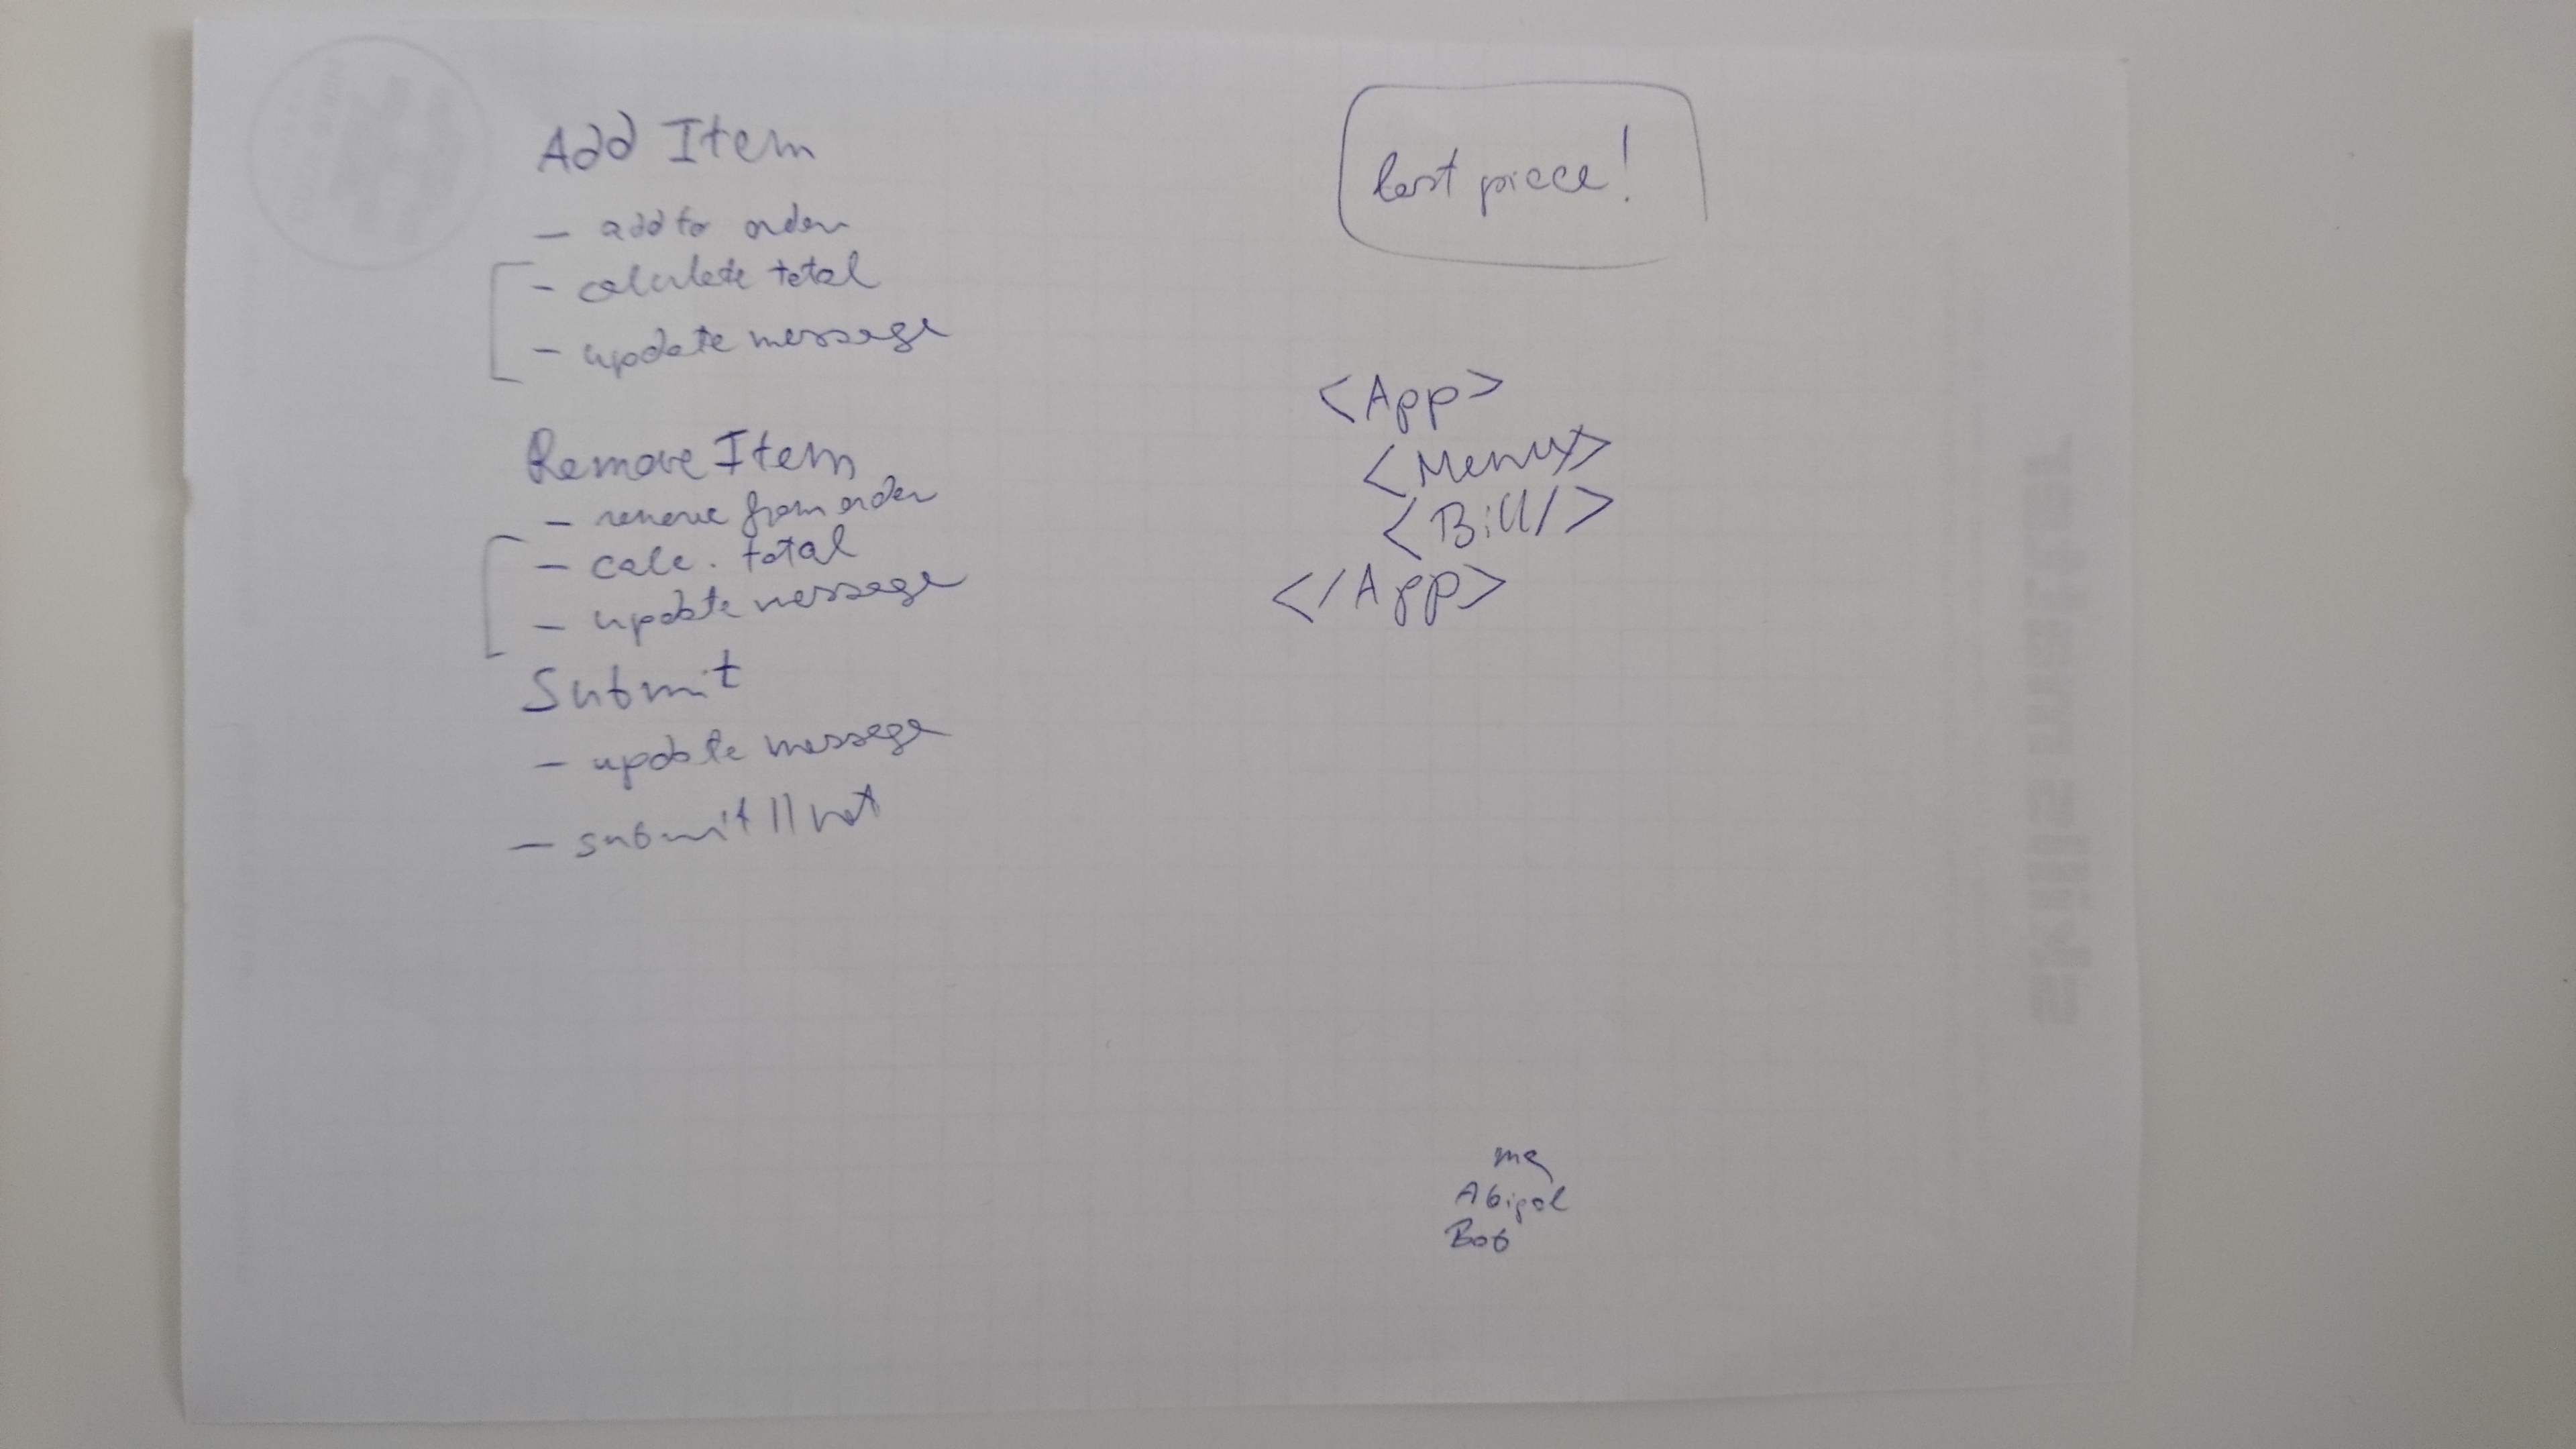 Add Item
- add to order
- calculate total
- update message
Remove Item
- remove from order
- calc. total
- update message
Submit
- update message
- submit || not
last piece!
<App>
<Menu/>
<Bill/>
</App>
me
Abigal
Bob
skills matter